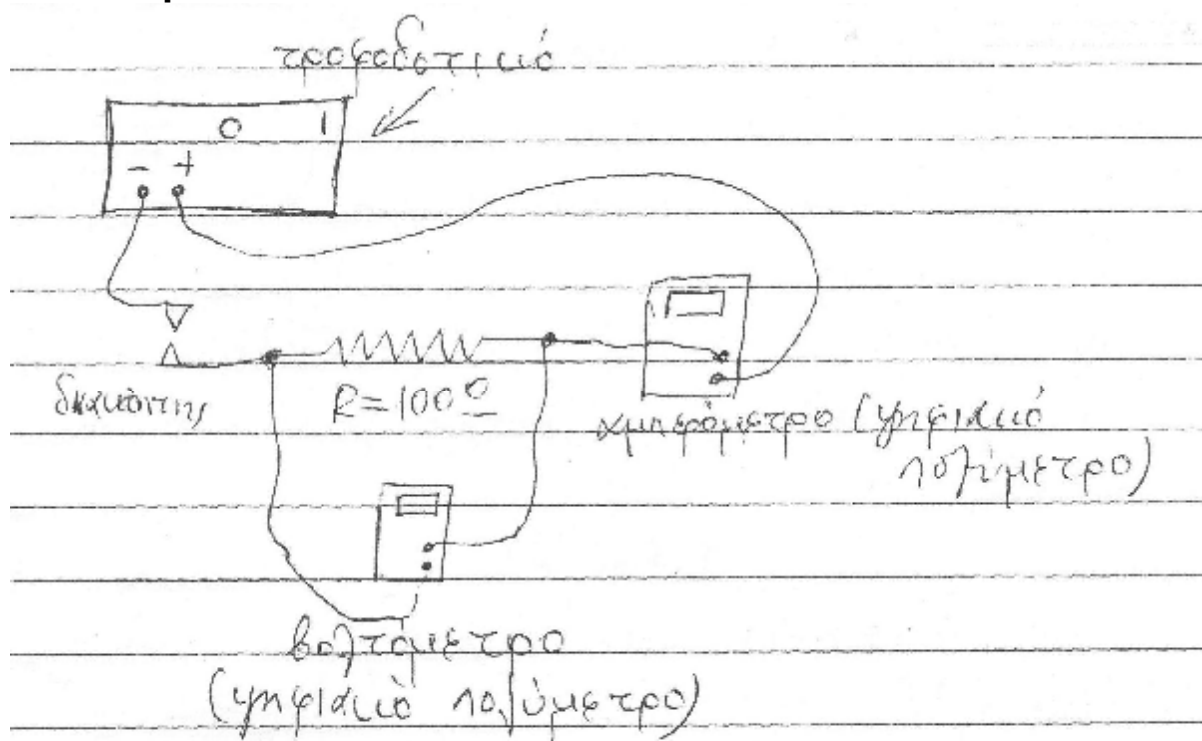 τροφοδοτικό
0 1
- +
διακόπτης
R=100Ω
αμπερόμετρο (ψηφιακό
πολύμετρο)
βολτόμετρο
(ψηφιακό πολύμετρο)